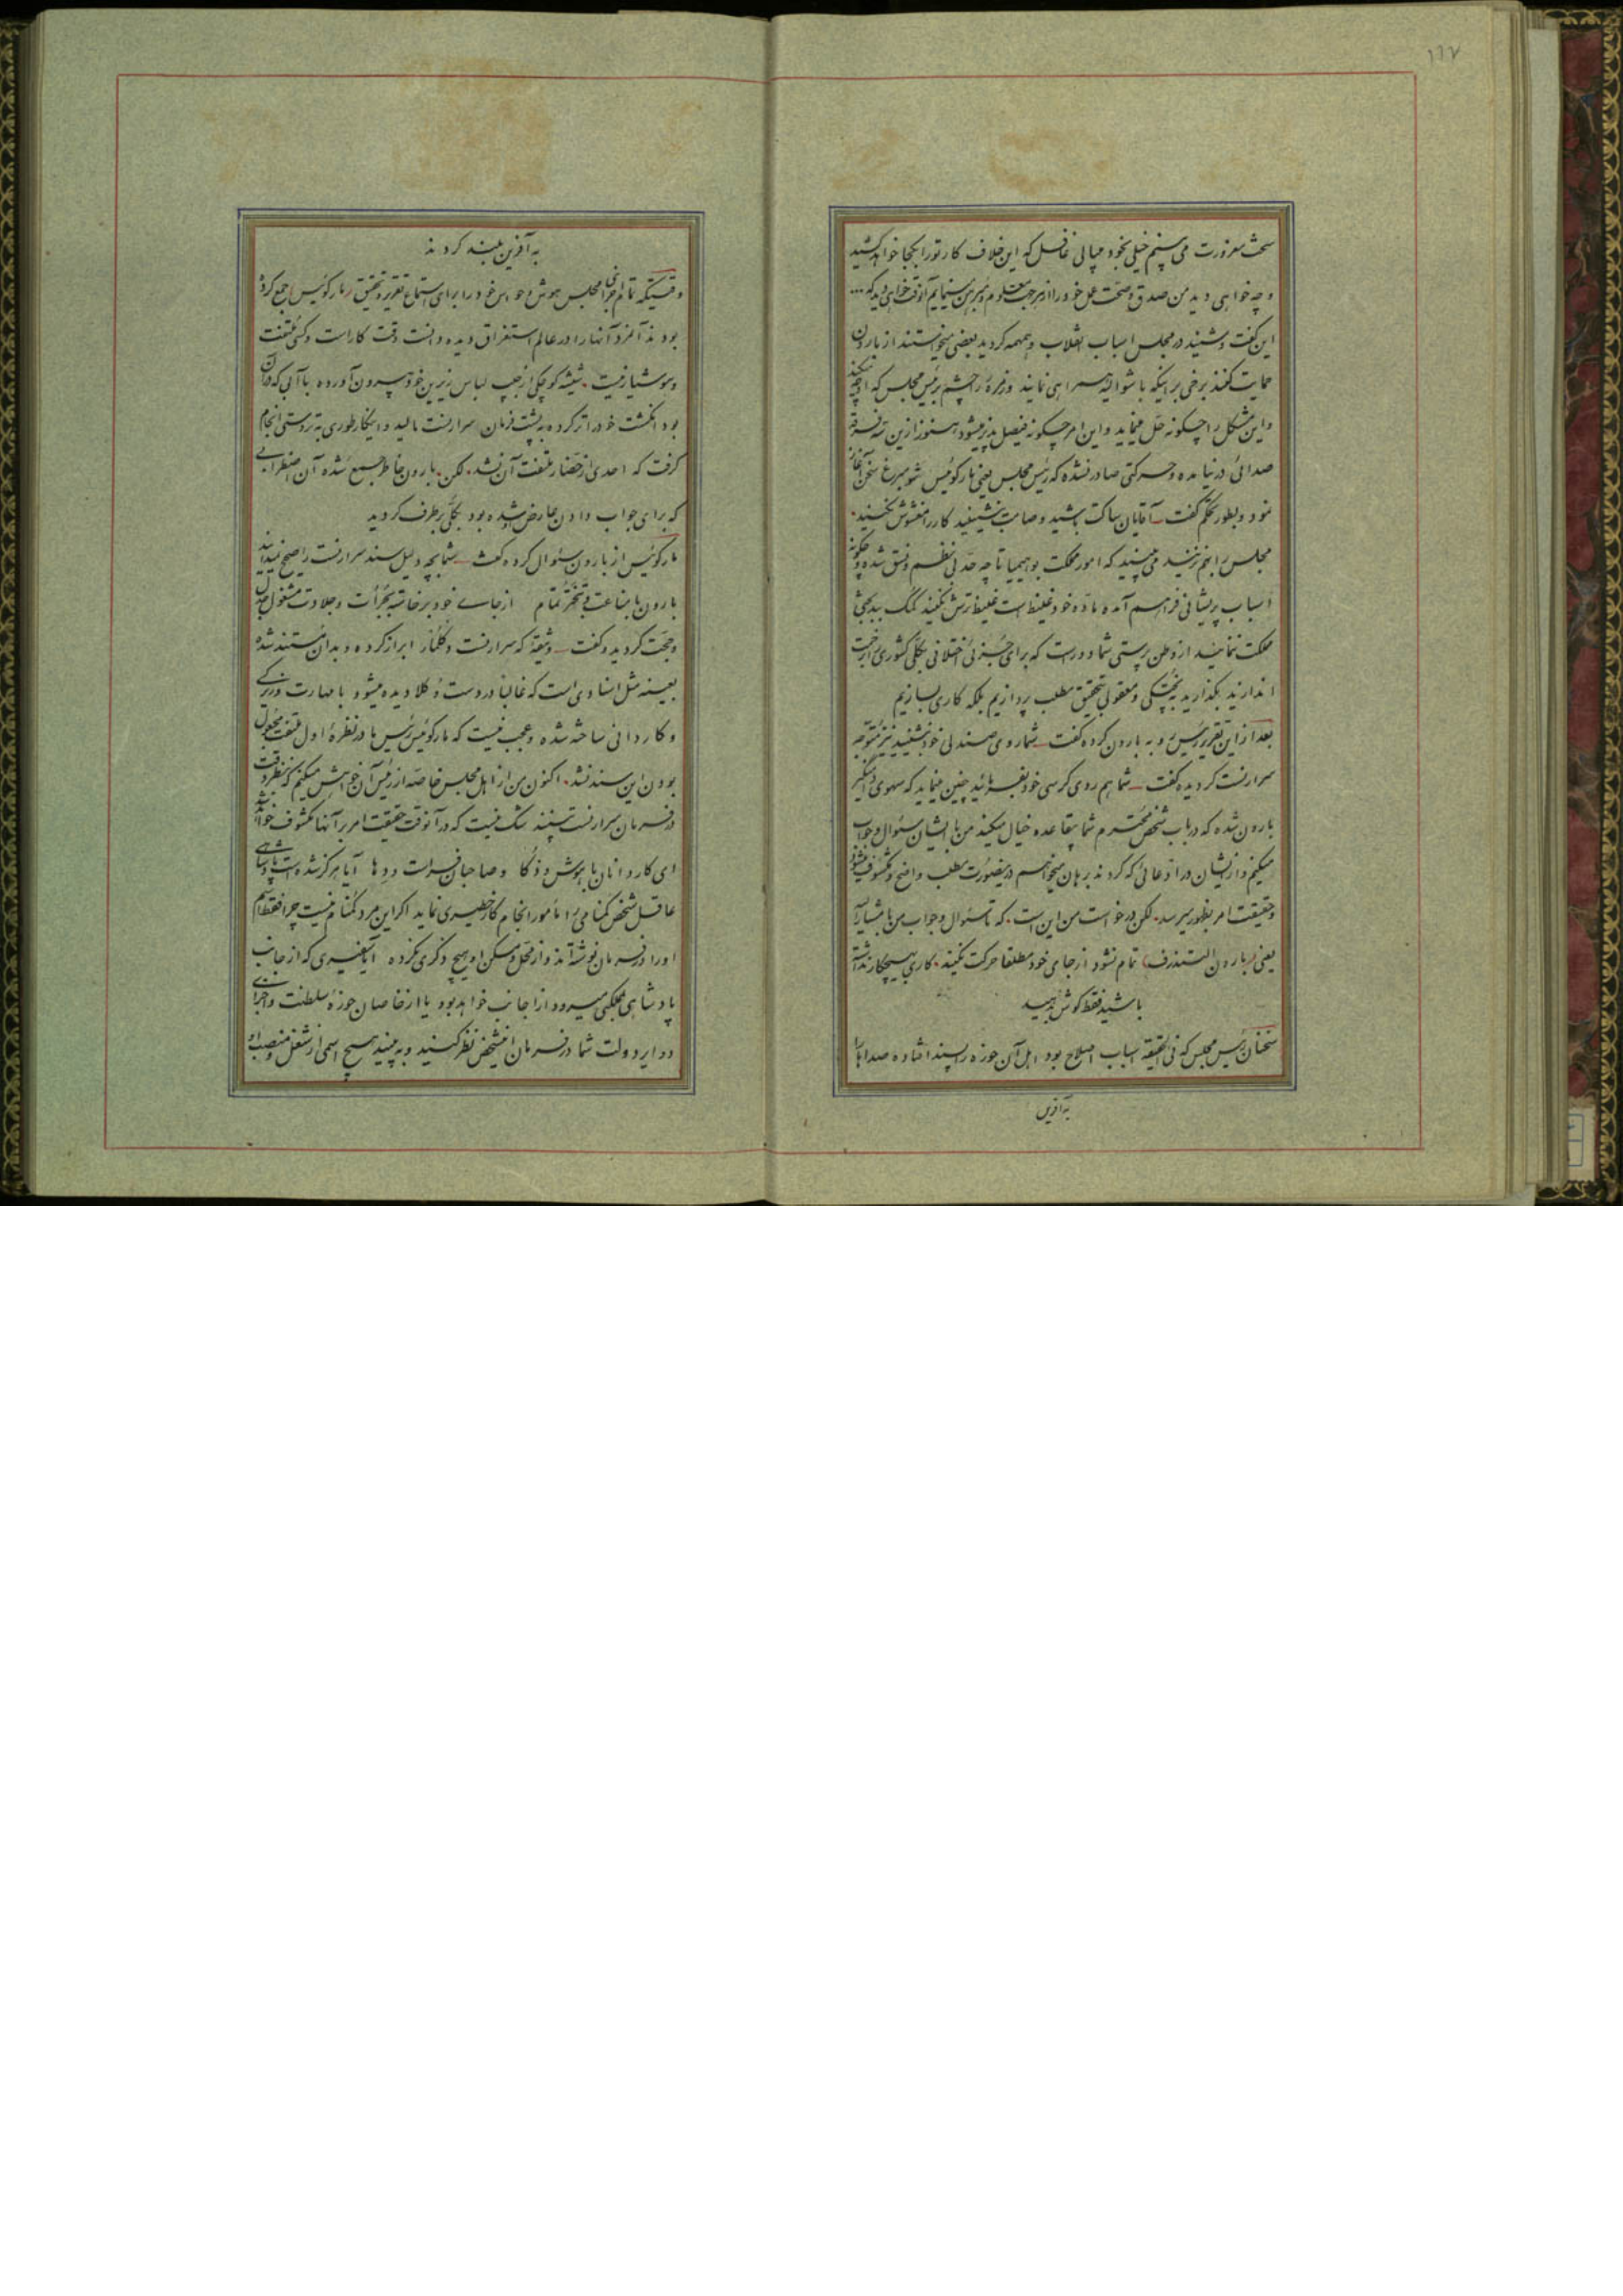 ۱۱۷
سخت مغرورت می بینم خیلی بخود میبالی غافل که این خلاف کار تو را بکجا خواهد کشید
و چه خواهی دید من صدق و صحت عمل خود را از هر جهت معلوم و مبرهن مینمایم آنوقت خواهی دید که ...
این گفت و شنید در مجلس اسباب انقلاب و همهمه گردید بعضی میخواستند از بارون
حمایت کنند برخی بر اینکه با شوالیه همراهی نمایند و زمرهٔ را چشم بر رئیس مجلس که او چه میکند
و این مشکل را چگونه حل مینماید و این امر چگونه فیصل پذیر میشود هنوز ازین سه فرقه
صدائی در نیامده و حرکتی صادر نشده که رئیس مجلس یعنی مارکوئیس شومبرغ سخن آغاز
نمود و بطور تحکم گفت آقایان ساکت باشید و صامت بنشینید کار را مغشوش نکنید
مجلس را بهم نزنید می بینید که امور مملکت بوهیمیا تا چه حد بی نظم و نسق شده و چگونه
اسباب پریشانی فراهم آمده ماده خود غلیظ است غلیظ ترش نکنید کمک ببدبختی
مملکت ننمائید از وطن پرستی شما دور است که برای جزئی اختلافی بکلی کشوری را بزحمت
اندازند بگذارید بپختگی و معقولی بتحقیق مطلب پردازیم بلکه کاری بسازیم
بعد از این تقریر رئیس رو به بارون کرده گفت شما روی صندلی خود بنشینید نیز متوجه
سرارنست گردیده گفت شما هم روی کرسی خود بفرمائید چنین مینماید که سهوی دامنگیر
بارون شده که در باب شخص محترم شما بیقاعده خیال میکند من با ایشان سئوال و جواب
میکنم و از ایشان در ادعائی که کردند برهان میخواهم درینصورت مطلب واضح و مکشوف میشود
و حقیقت امر بظهور میرسد لکن درخواست من این است که تا سئوال و جواب من با مشارالیه
یعنی (بارون التندرف) تمام نشود از جای خود مطلقا حرکت نکنید کاری بهیچکار نداشته
باشید فقط گوش بدهید
سخنان رئیس مجلس که فی الحقیقه اسباب اصلاح بود اهل آن حوزه را پسند افتاده صداها را
به آفرین
به آفرین بلند کردند
وقتیکه تمام اجزای مجلس هوش و حواس خود را برای استماع تقریر و تحقیق مارکوئیس جمع کرده
بودند آنمرد آنها را در عالم استغراق دیده دانست وقت کار است و کسی ملتفت
و هوشیار نیست شیشه کوچکی از جیب لباس زیرین خود بیرون آورده با آبی که در آن
بود انگشت خود را تر کرده به پشت فرمان سرارنست مالید و اینکار طوری به تردستی انجام
گرفت که احدی از حضار ملتفت آن نشد لکن بارون خاطر جمع شده آن اضطرابی
که برای جواب دادن عارض شده بود بکلی برطرف گردید
مارکوئیس از بارون سئوال کرده گفت شما بچه دلیل سند سرارنست را صحیح نمیدانید
بارون با مناعت و تبختر تمام از جای خود برخاسته بجرأت و جلادت مشغول جدل
و حجت گردید و گفت وثیقهٔ که سرارنست دکلنار ابراز کرده و بدان مستند شده
بعینه مثل اسنادی است که غالبا در دست وکلا دیده میشود با مهارت و زیرکی
و کاردانی ساخته شده و عجب نیست که مارکوئیس رئیس ما در نظرهٔ اول ملتفت مجعول
بودن این سند نشد اکنون من از اهل مجلس خاصه از رئیس آن خواهش میکنم که بنظر دقت
در فرمان سرارنست ببینند شک نیست که در آنوقت حقیقت امر بر آنها مکشوف خواهد شد
ای کاردانان با هوش و ذکا و صاحبان فراست و دها آیا هرگز شده است پادشاهی
عاقل شخص گمنامی را مأمور انجام کار خطیری نماید اگر این مرد گمنام نیست چرا فقط اسم
او را در فرمان نوشته اند و از محل و مسکن او هیچ ذکری نکرده آیا سفیری که از جانب
پادشاهی بملکی میرود از اجانب خواهد بود یا از خاصان حوزهٔ سلطنت و اجزای
دوایر دولت شما در فرمان این شخص نظر کنید و به بینید هیچ اسمی از شغل و منصب او